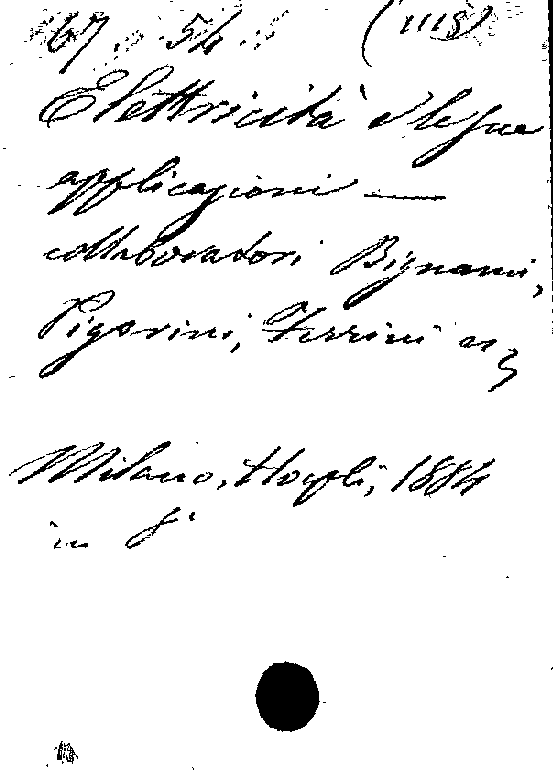 67. 54. (1118)
Elettricità e le sue
applicazioni —
collaboratori Bignami,
Pigorini, Ferrini
Milano, Hoepli, 1884
in 8°